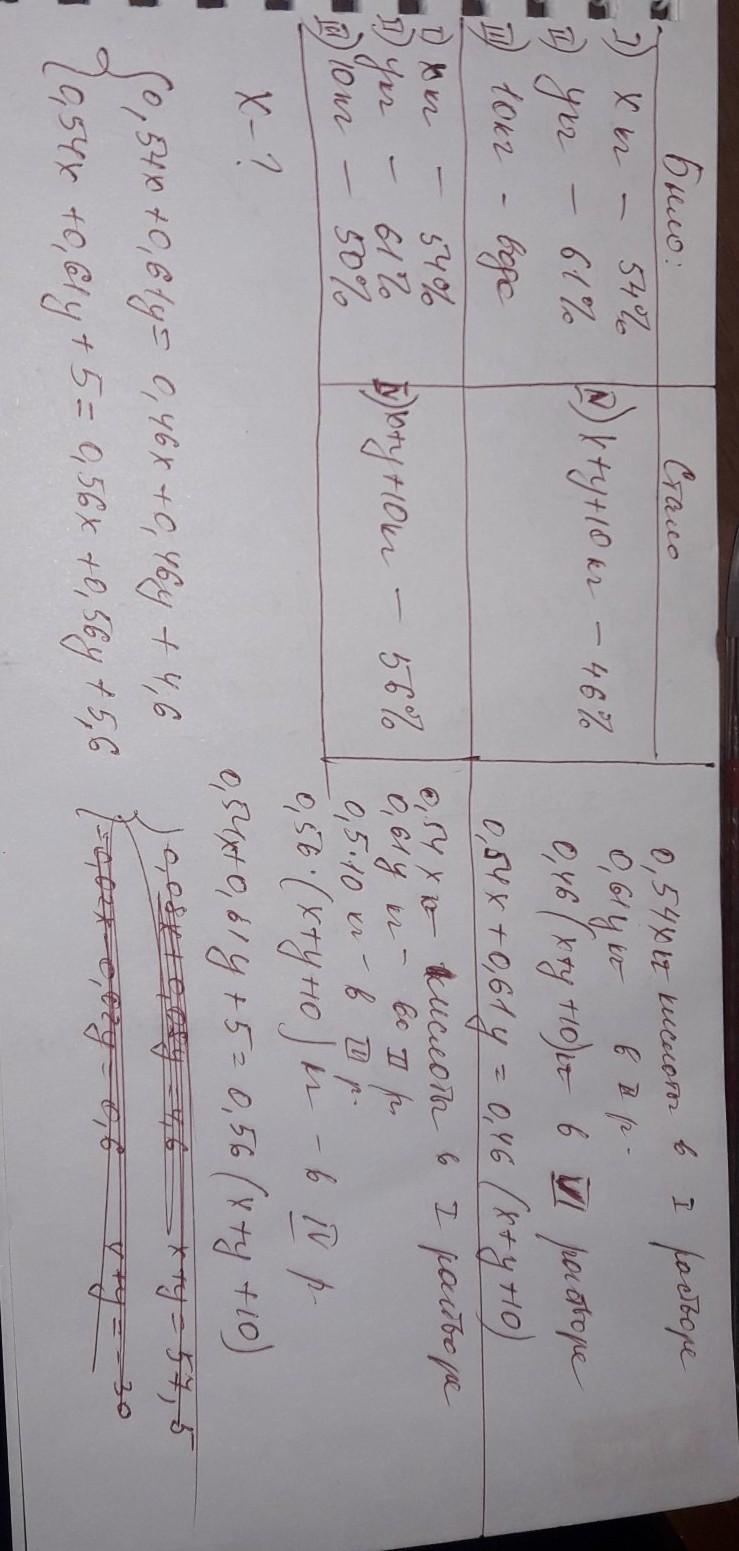 Было:
Стало
I) x кг – 54%
II) y кг – 61%
III) 10 кг – вода
IV) x+y+10 кг – 46%
0,54x кг кислоты в I растворе
0,61y кг – в II р.
0,46 (x+y+10) кг – в VI растворе
0,54x + 0,61y = 0,46 (x+y+10)
I) x кг – 54%
II) y кг – 61%
III) 10 кг – 50%
IV) x+y+10 кг – 56%
0,54x кг кислоты в I растворе
0,61y кг – во II р.
0,5·10 кг – в III р.
0,56·(x+y+10) кг – в IV р.
0,54x+0,61y+5=0,56(x+y+10)
x – ?
0,54x+0,61y=0,46x+0,46y+4,6
0,54x+0,61y+5=0,56x+0,56y+5,6
x+y=57,5
-0,02x-0,02y=0,6 x+y=-30